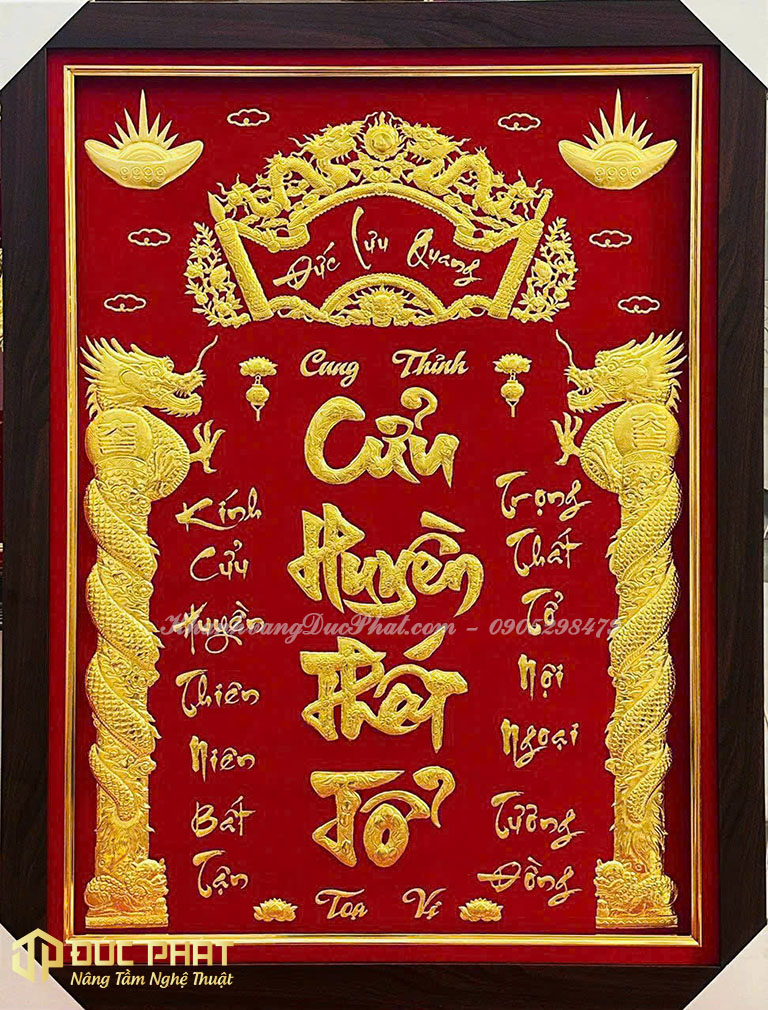 Đức Lưu Quang
Cung Thỉnh
Cửu
Huyền
Thất
Tổ
Kính
Cửu
Huyền
Thiên
Niên
Bất
Tận
Trọng
Thất
Tổ
Nội
Ngoại
Tường
Đồng
Toạ Vị
ĐỨC PHÁT
Nâng Tầm Nghệ Thuật